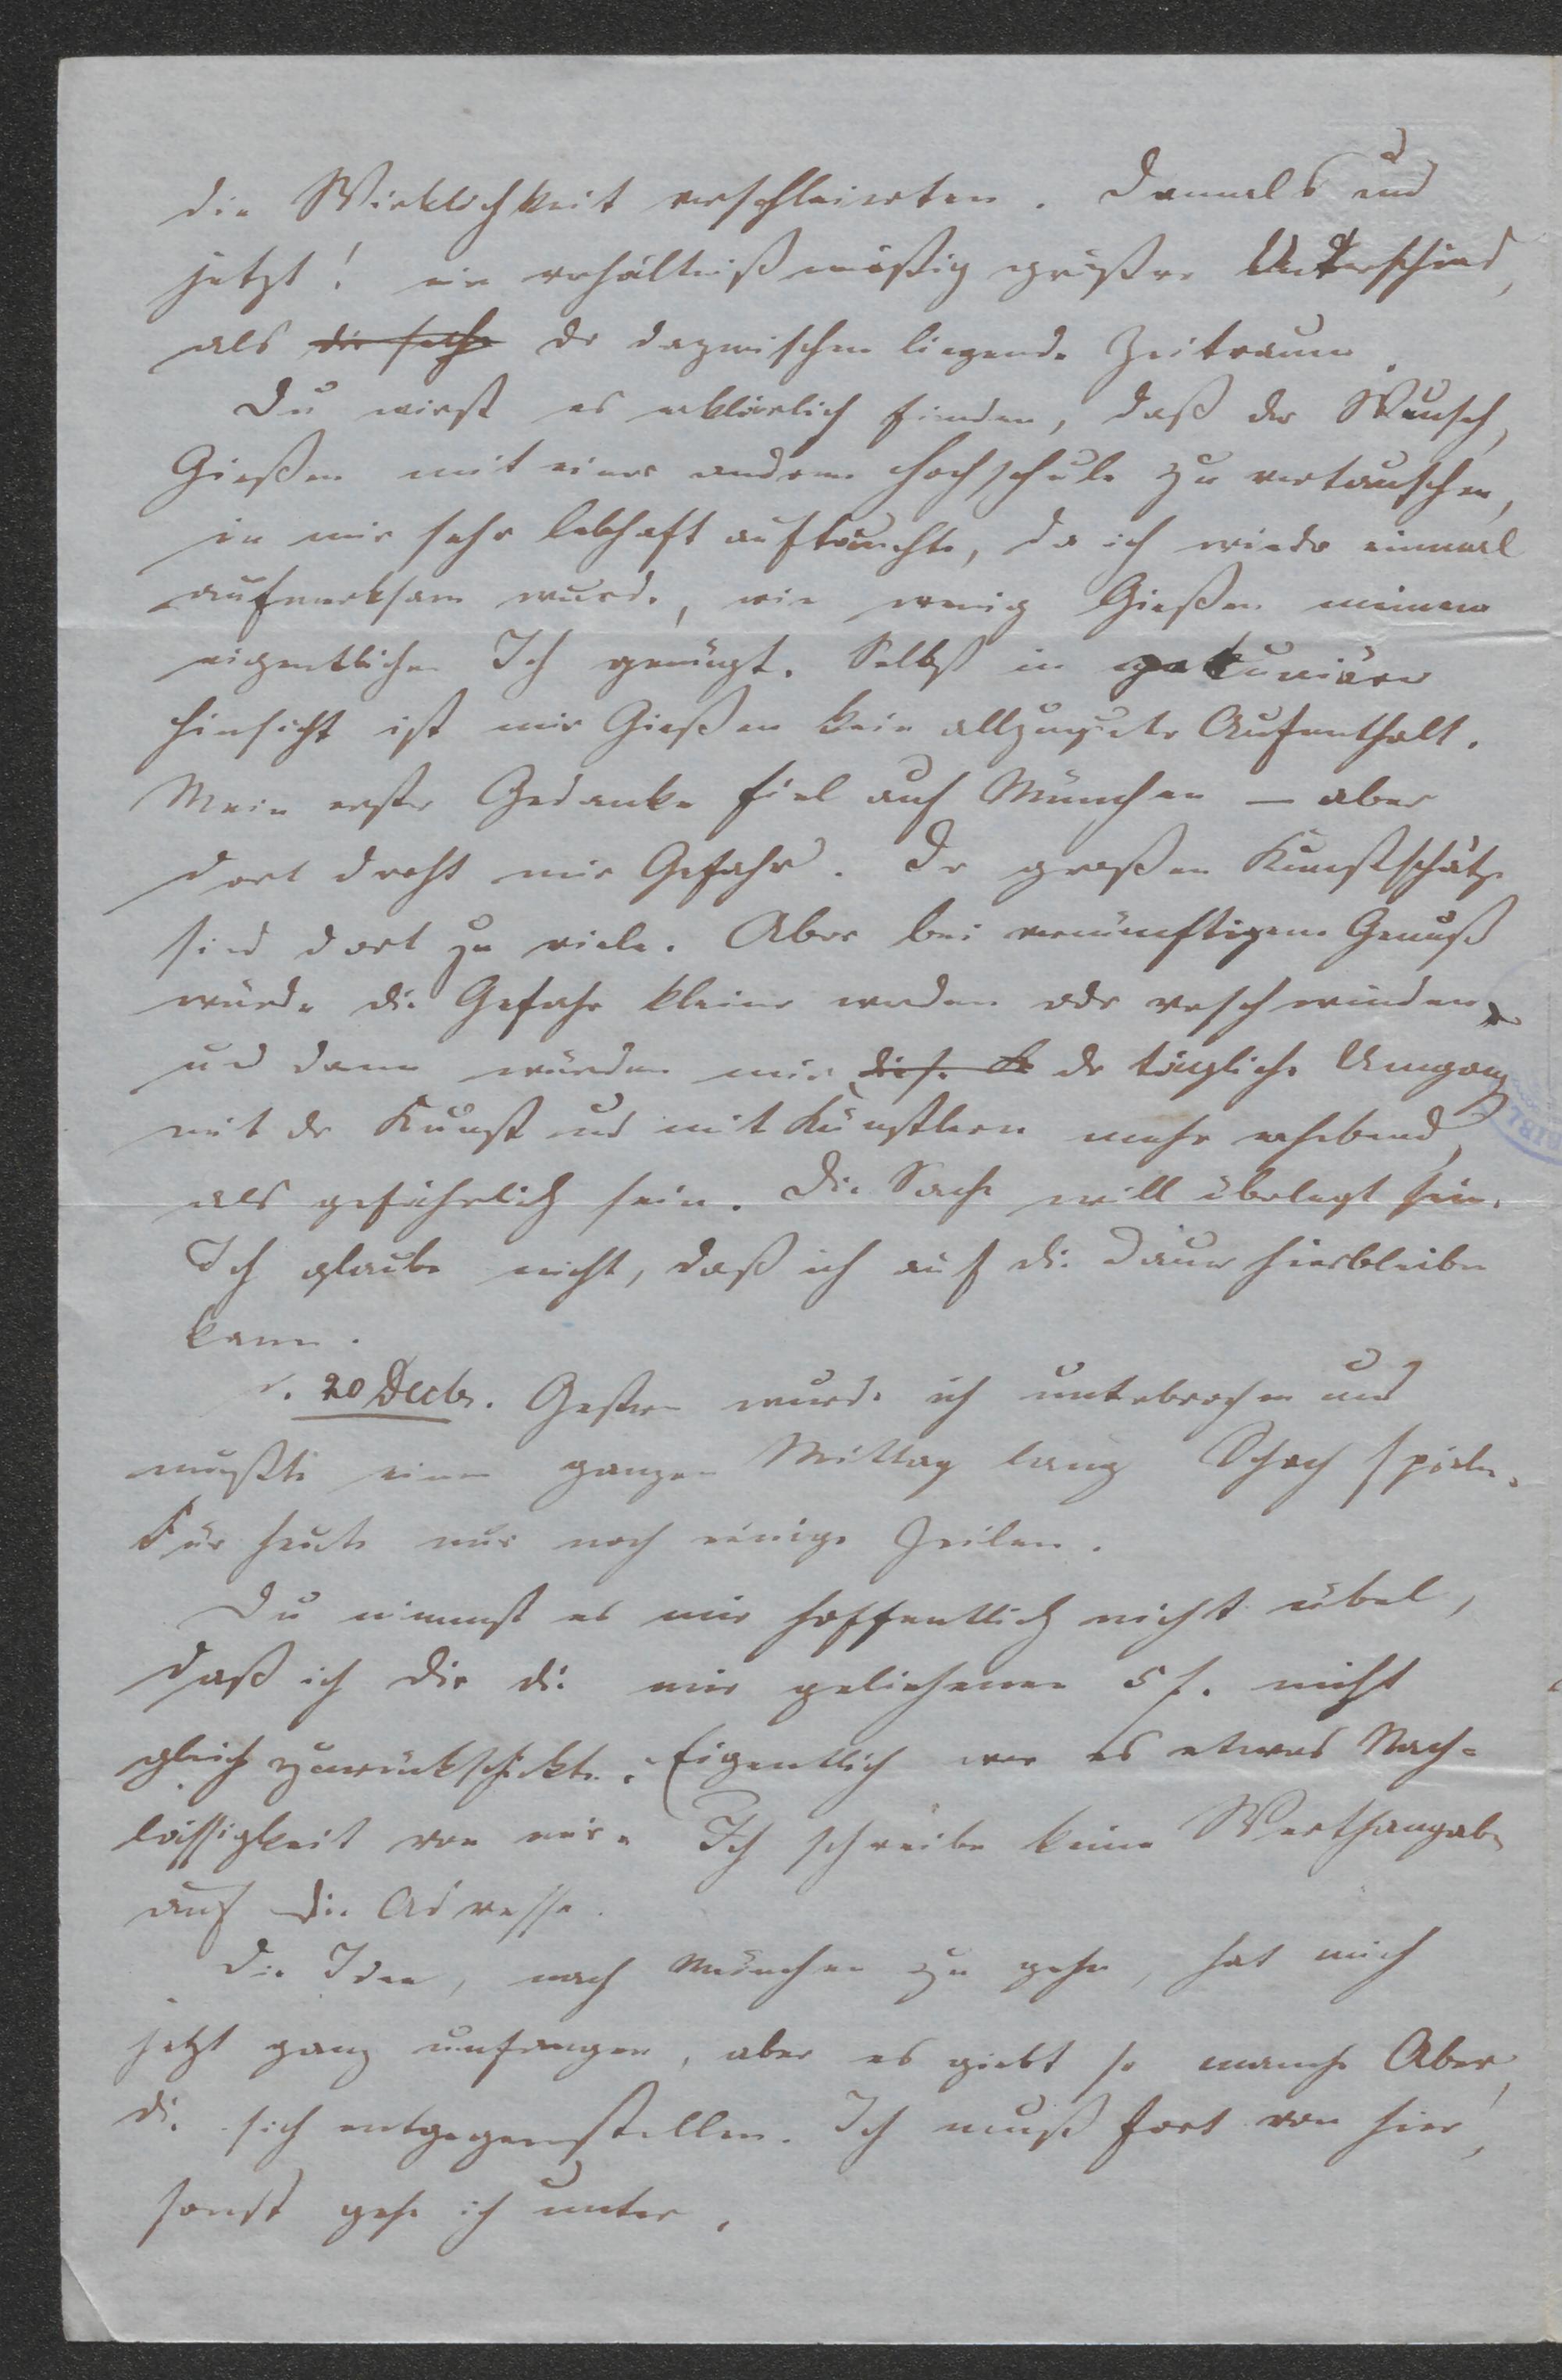 die Wirklichkeit verschleierten. Damals und
jetzt! ein verhältnißmäßig größrer Unterschied,
als die selbe der dazwischen liegende Zeitraum
Du wirst es erklärlich finden, daß der Wunsch,
Gießen mit einer andern Hochschule zu vertauschen,
in mir sehr lebhaft auftauchte, da ich wieder einmal
aufmerksam wurde, wie wenig Gießen meinem
eigentlichen Ich genügt. Selbst in pekuniärer
Hinsicht ist mir Gießen kein allzuguter Aufenthalt.
Mein erster Gedanke fiel auf München — aber
dort droht mir Gefahr. Der großen Kunstschätze
sind dort zu viele. Aber bei vernünftigem Genuß
würde die Gefahr kleiner werden oder verschwinden,
und dann würden mir diese der tägliche Umgang
mit der Kunst und mit Künstlern mehr erhebend,
als gefährlich sein. Die Sache will überlegt sein.
Ich glaube nicht, daß ich auf die Dauer hierbleiben
kann.
d. 20 Decbr. Gestern wurde ich unterbrochen und
mußte einen ganzen Mittag lang Schach spielen.
Für heute nur noch einige Zeilen.
Du nimmst es mir hoffentlich nicht übel,
daß ich Dir die mir geliehenen 5 f. nicht
gleich zurückschickte. Eigentlich war es etwas Nach-
lässigkeit von mir. Ich schreibe keine Werthangabe
auf die Adresse.
Die Idee, nach München zu gehen, hat mich
jetzt ganz umfangen, aber es giebt so manche Aber,
die sich entgegenstellen. Ich muß fort von hier,
sonst gehe ich unter.